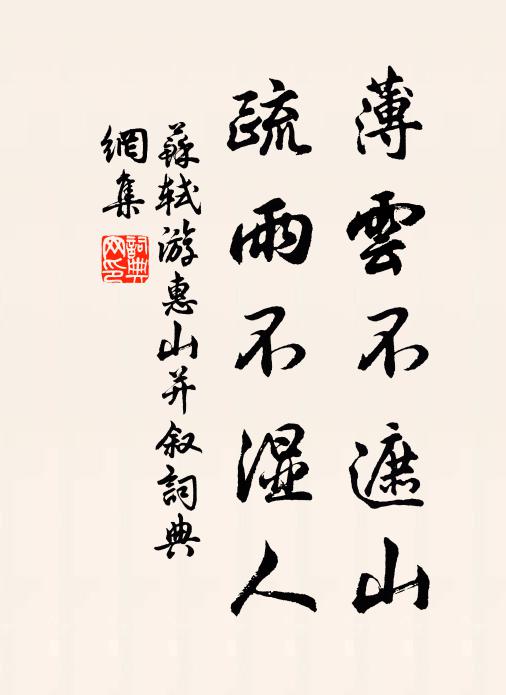 薄雲不遮山
疏雨不濕人
蘇軾游惠山并叙詞典
網集
詞典
网印